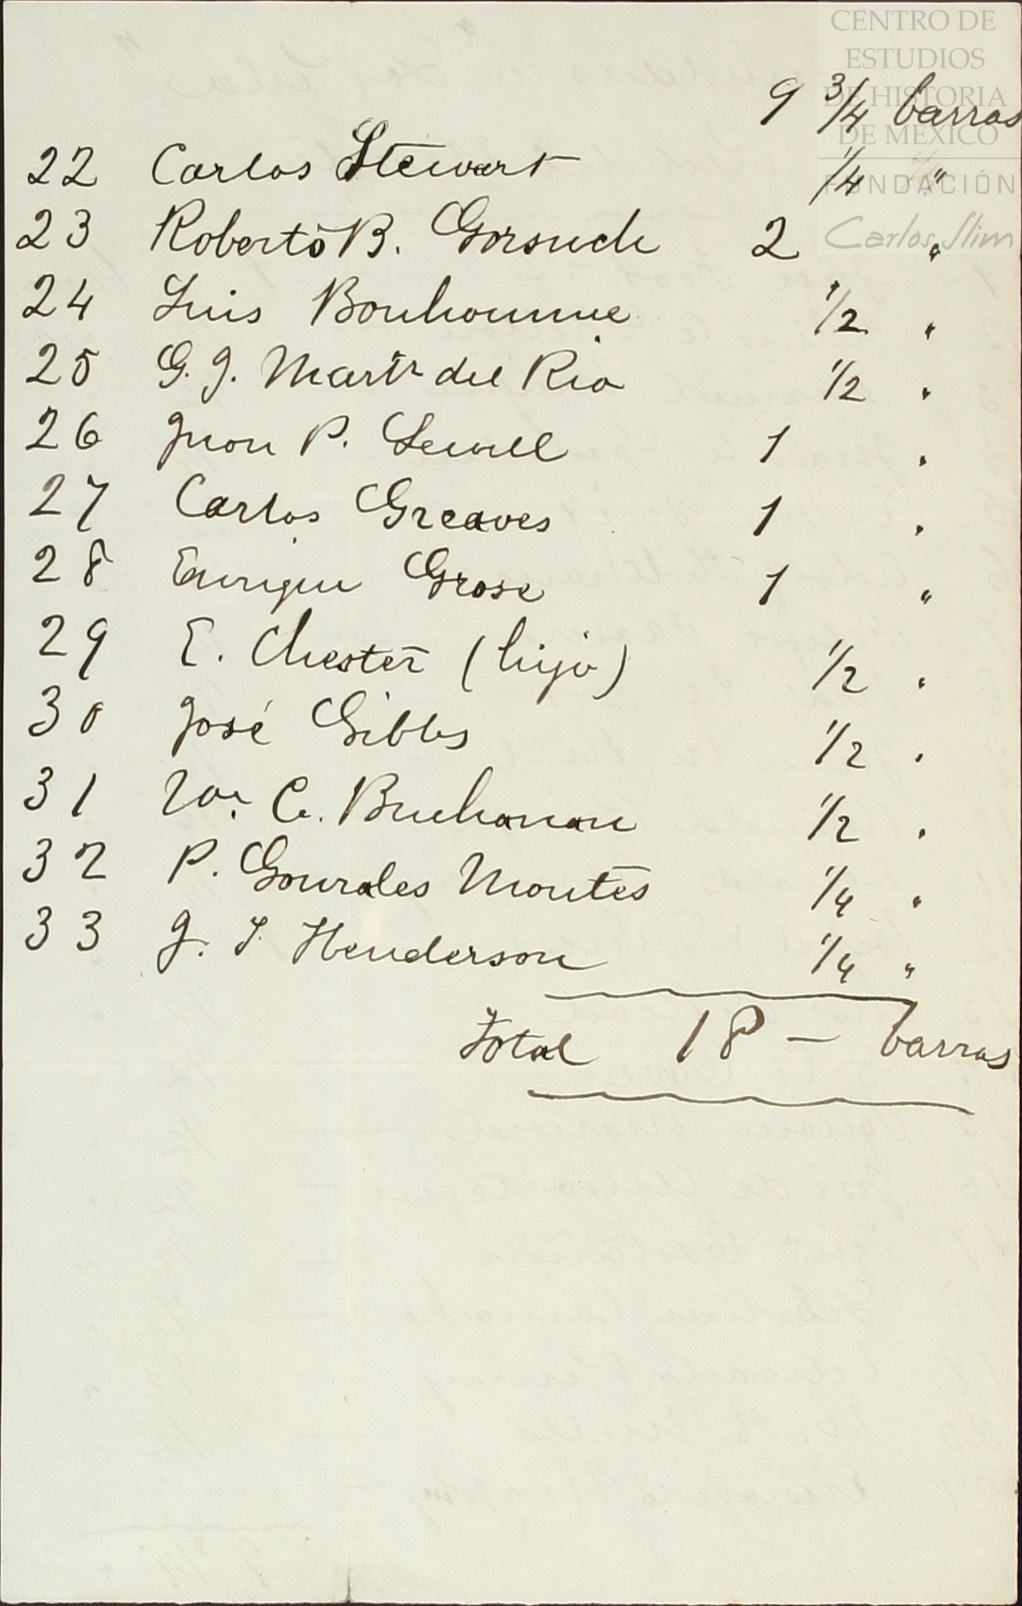 CENTRO DE
ESTUDIOS
DE HISTORIA
DE MEXICO
FUNDACIÓN
Carlos Slim
9 3/4 barras
22 Carlos Stewart 1/4 "
23 Roberto B. Gorsuch 2 "
24 Luis Bonhomme 1/2 "
25 G. J. Martr del Rio 1/2 "
26 Juan P. Sewell 1 "
27 Carlos Greaves 1 "
28 Enrique Grose 1 "
29 E. Chester (hijo) 1/2 "
30 José Gibbs 1/2 "
31 Wm. C. Buchanan 1/2 "
32 P. Gonzales Montes 1/4 "
33 J. Henderson 1/4 "
Total 18 — barras